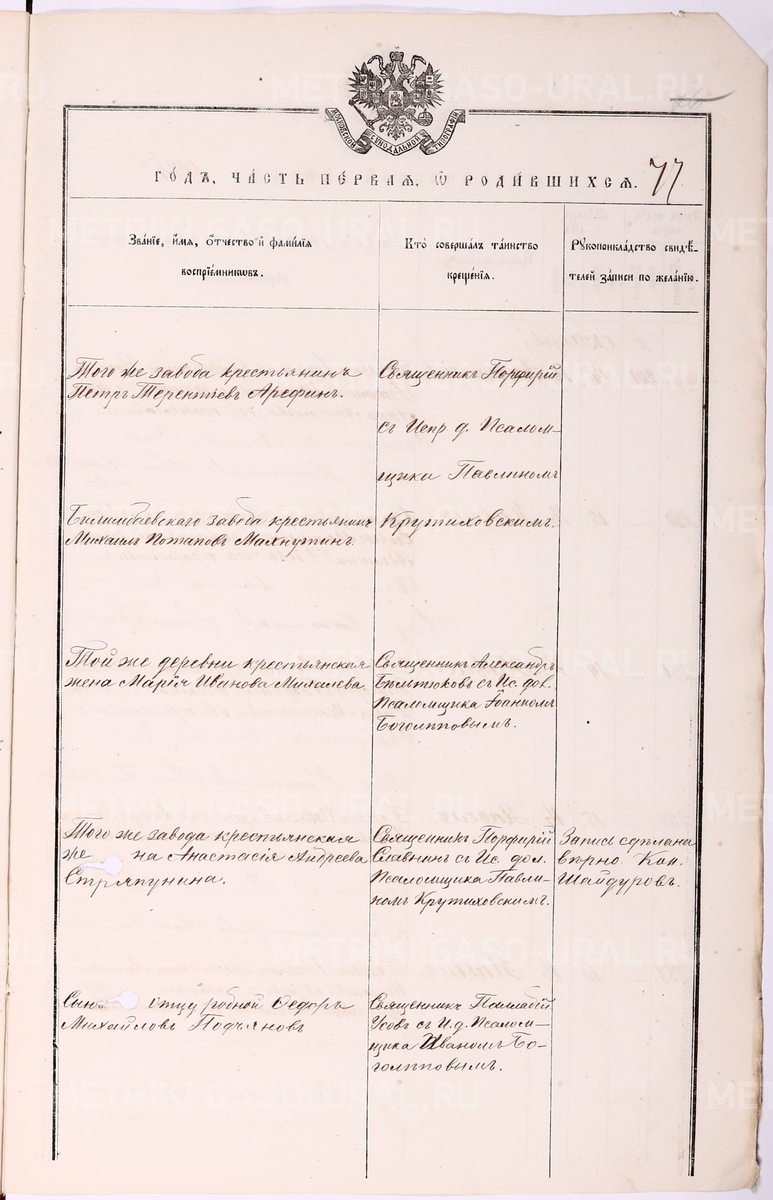 МОСКОВСКОЙ СѴНОДАЛЬНОЙ ТИПОГРАФІИ
76
ГОДЪ, ЧАСТЬ ПЕРВАЯ, Ѡ РОДИВШИХСЯ. 77
Званїе, имя, ѻтчество и фамилїя
воспрїемникωвъ.
Кто совершалъ таинство
крещенїя.
Рꙋкоприкладство свидѣ-
телей записи по желанїю.
Того же завода крестьянинъ
Петръ Терентіевъ Арефинъ.
Священникъ Порфирій
съ Испр д. Псалом-
щика Павлиномъ
Крутиховскимъ.
Билимбаевскаго завода крестьянинъ
Михаилъ Потаповъ Махнутинъ.
Той же деревни крестьянская
жена Марія Иванова Михалева.
Священникъ Александръ
съ Ис. дол.
Псаломщика Іоанномъ
Боголѣповымъ.
Того же завода крестьянская
же на Анастасія Андреева
Стряпунина.
Священникъ Порфирій
Славнинъ съ Ис. дол.
Псаломщика Павли-
номъ Крутиховскимъ.
Запись сдѣлана
вѣрно Кан.
Шайдуровъ.
Сынъ отцу родной Ѳедоръ
Михайловъ Подъяновъ
Священникъ Палладій
Усовъ съ И. д. Псалом-
щика Иваномъ Бо-
голѣповымъ.
METRIKI.GASO-URAL.RU